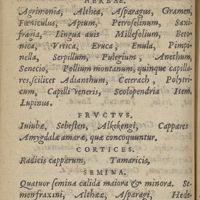 HERBAE,
Agrimonia, Althæa, Asparagus, Gramen,
Fœniculus, Apium, Petroselinum, Saxi-
fragia, Lingua avis Millefolium, Beto-
nica, Vrtica, Eruca, Enula, Pimpi-
nella, Serpillum, Pulegium, Anethum,
Senecio, Pollium montanum, quinque capilla-
res, scilicet Adianthum, Ceterach, Polytri-
cum, Capilli Veneris, Scolopendria Item.
Lupinus.
FRVCTVS,
Iniubæ, Sebesten, Alkekengi, Cappares
Amygdalæ amaræ, quæ concoquuntur.
CORTICES.
Radicis capparum, Tamaricis,
SEMINA.
Quatuor semina calida maiora & minora. Se-
menfraxini, Althææ, Asparagi, Hede-